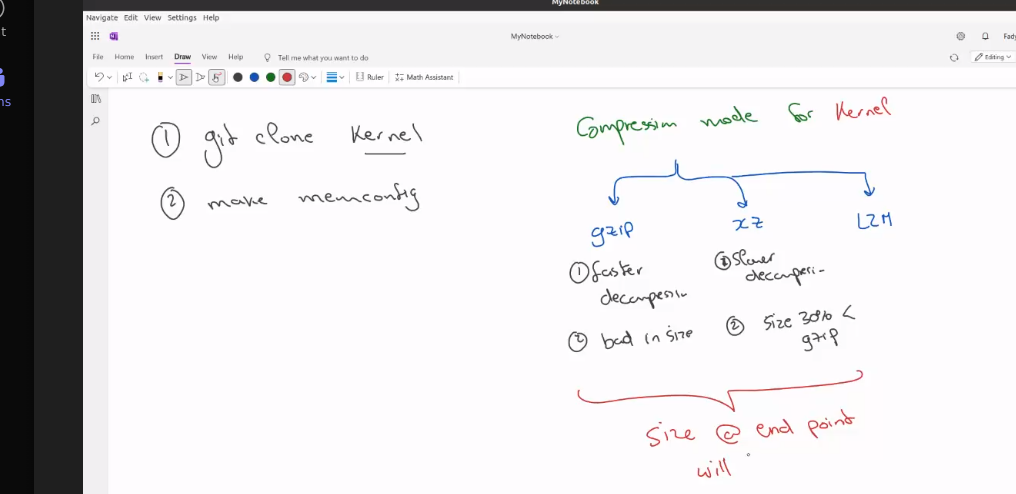 MyNotebook
Navigate Edit View Settings Help
MyNotebook
Fady
File Home Insert Draw View Help Tell me what you want to do
Editing
Ruler Math Assistant
① git clone Kernel
② make memconfig
Compression mode for Kernel
gzip xz LZM
① faster
decompession
② bad in size
① Slower
decomperi-
② Size 30% <
gzip
Size @ end point
will
t
ns